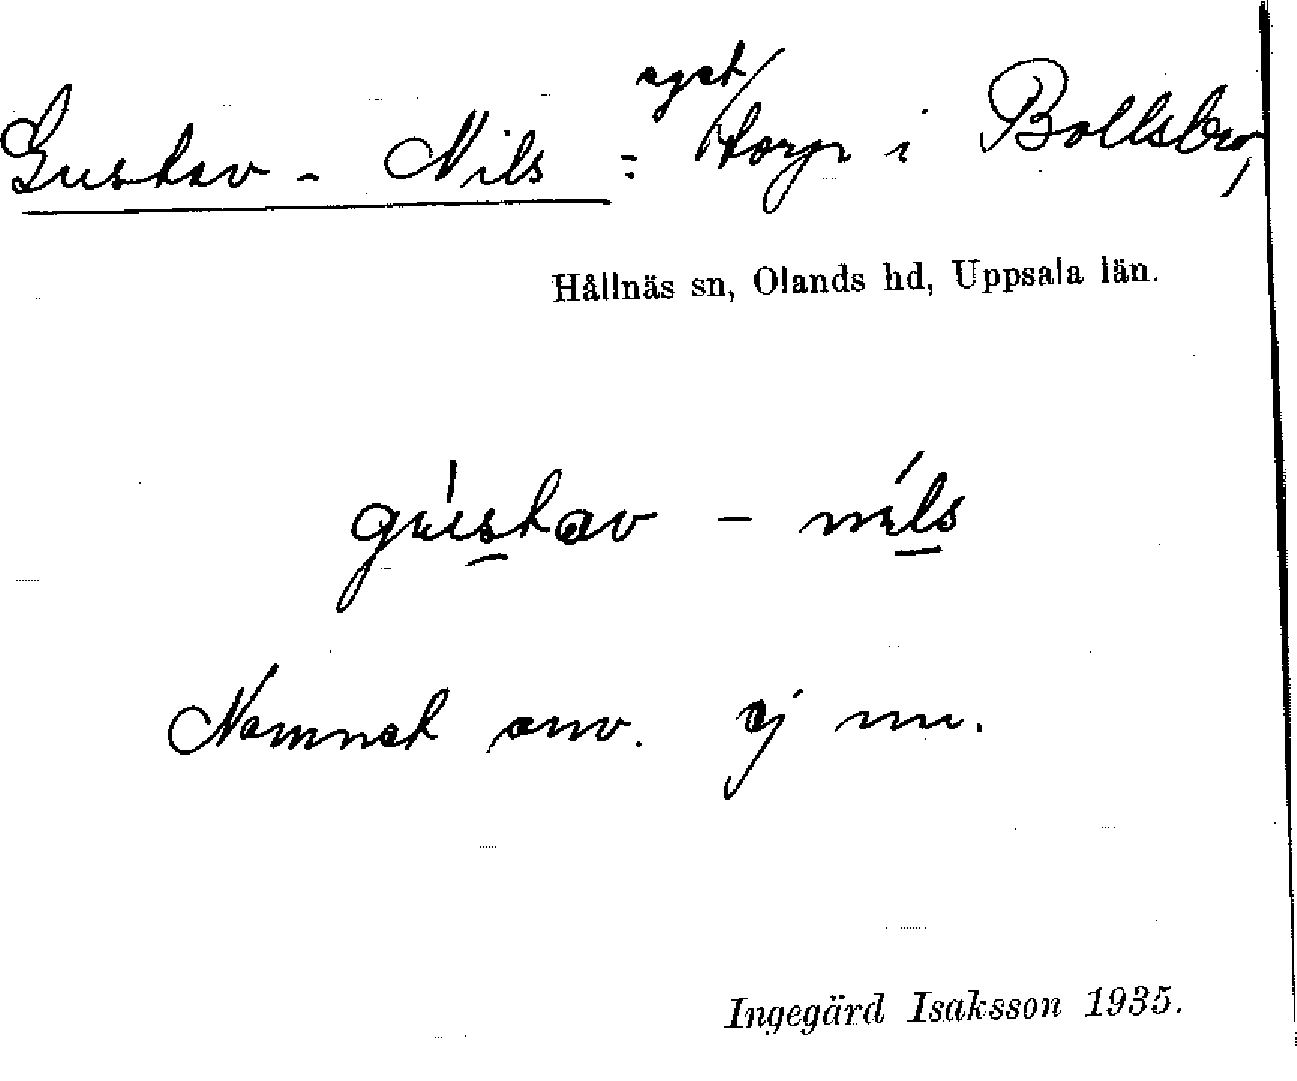 Gustav - Nils : eget torp i Bollsbo,
Hållnäs sn, Olands hd, Uppsala län.
gústav - níls
Namnet anv. ej nu.
Ingegärd Isaksson 1935.